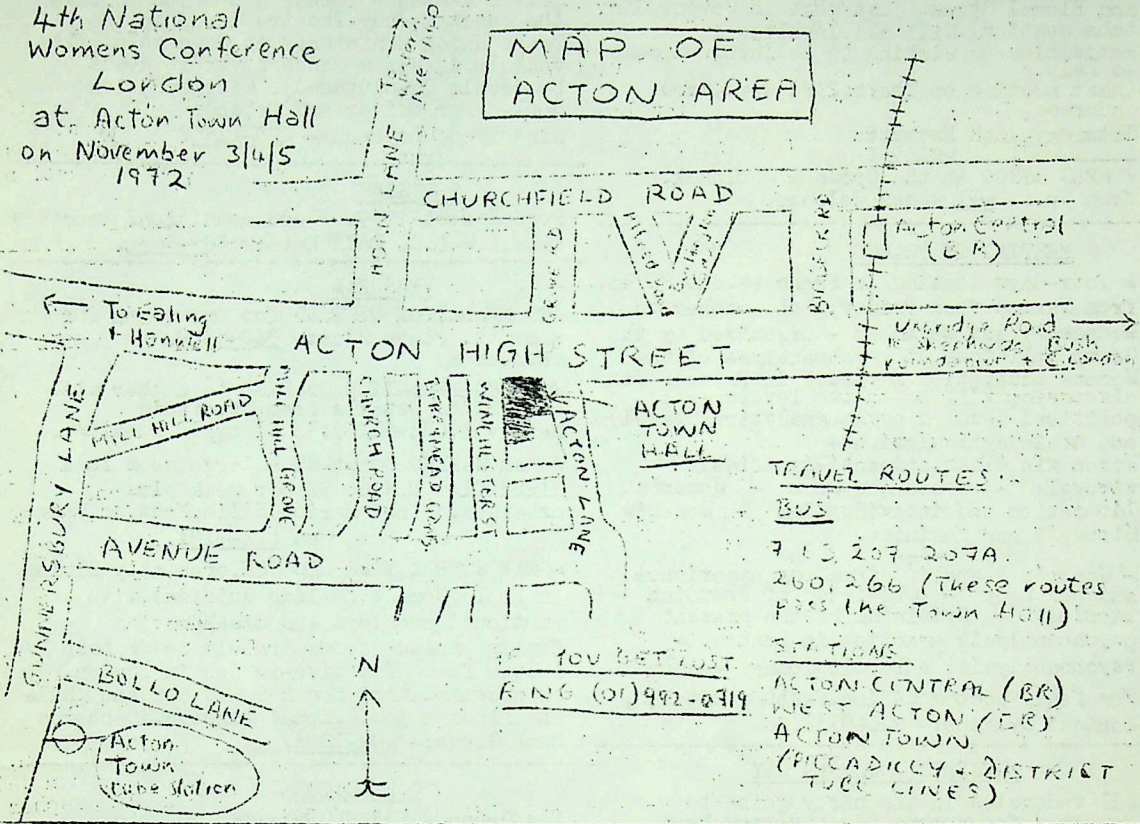 4th National
Womens Conference
London
at Acton Town Hall
on November 3/4/5
1972
MAP OF
ACTON AREA
To Western
Avenue
HORN LANE
CHURCHFIELD ROAD
GROVE RD
Acton Central
(B.R)
← To Ealing
+ Hanwell
Uxbridge Road
to Shepherds Bush
roundabout +
ACTON HIGH STREET
MILL HILL ROAD
MILL HILL GROVE
CHURCH ROAD
WINCHESTER ST
ACTON LANE
ACTON
TOWN
HALL
GUNNERSBURY LANE
AVENUE ROAD
BOLLO LANE
Acton
Town
tube station
N
IF YOU GET LOST
RING (01) 992-0719
TRAVEL ROUTES
BUS
207 207A
260, 266 (These routes
pass the Town Hall)
STATIONS
ACTON CENTRAL (BR)
WEST ACTON
ACTON TOWN
(PICCADILLY + DISTRICT
TUBE LINES)